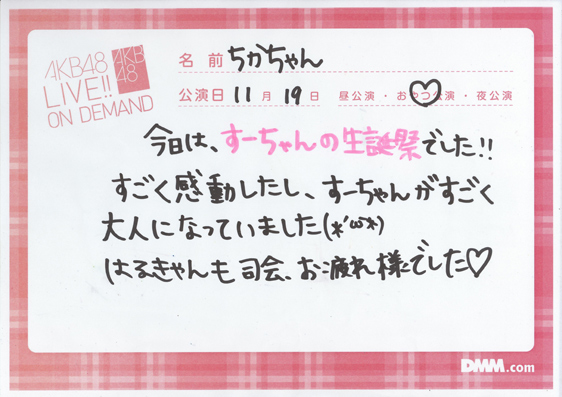 AKB48
LIVE!!
ON DEMAND
AKB
48
名 前 ちかちゃん
公演日 11 月 19 日 昼公演・おやつ公演・夜公演
今日は、すーちゃんの生誕祭でした!!
すごく感動したし、すーちゃんがすごく
大人になっていました(*'ω'*)
はるきゃんも司会、お疲れ様でした♡
DMM.com